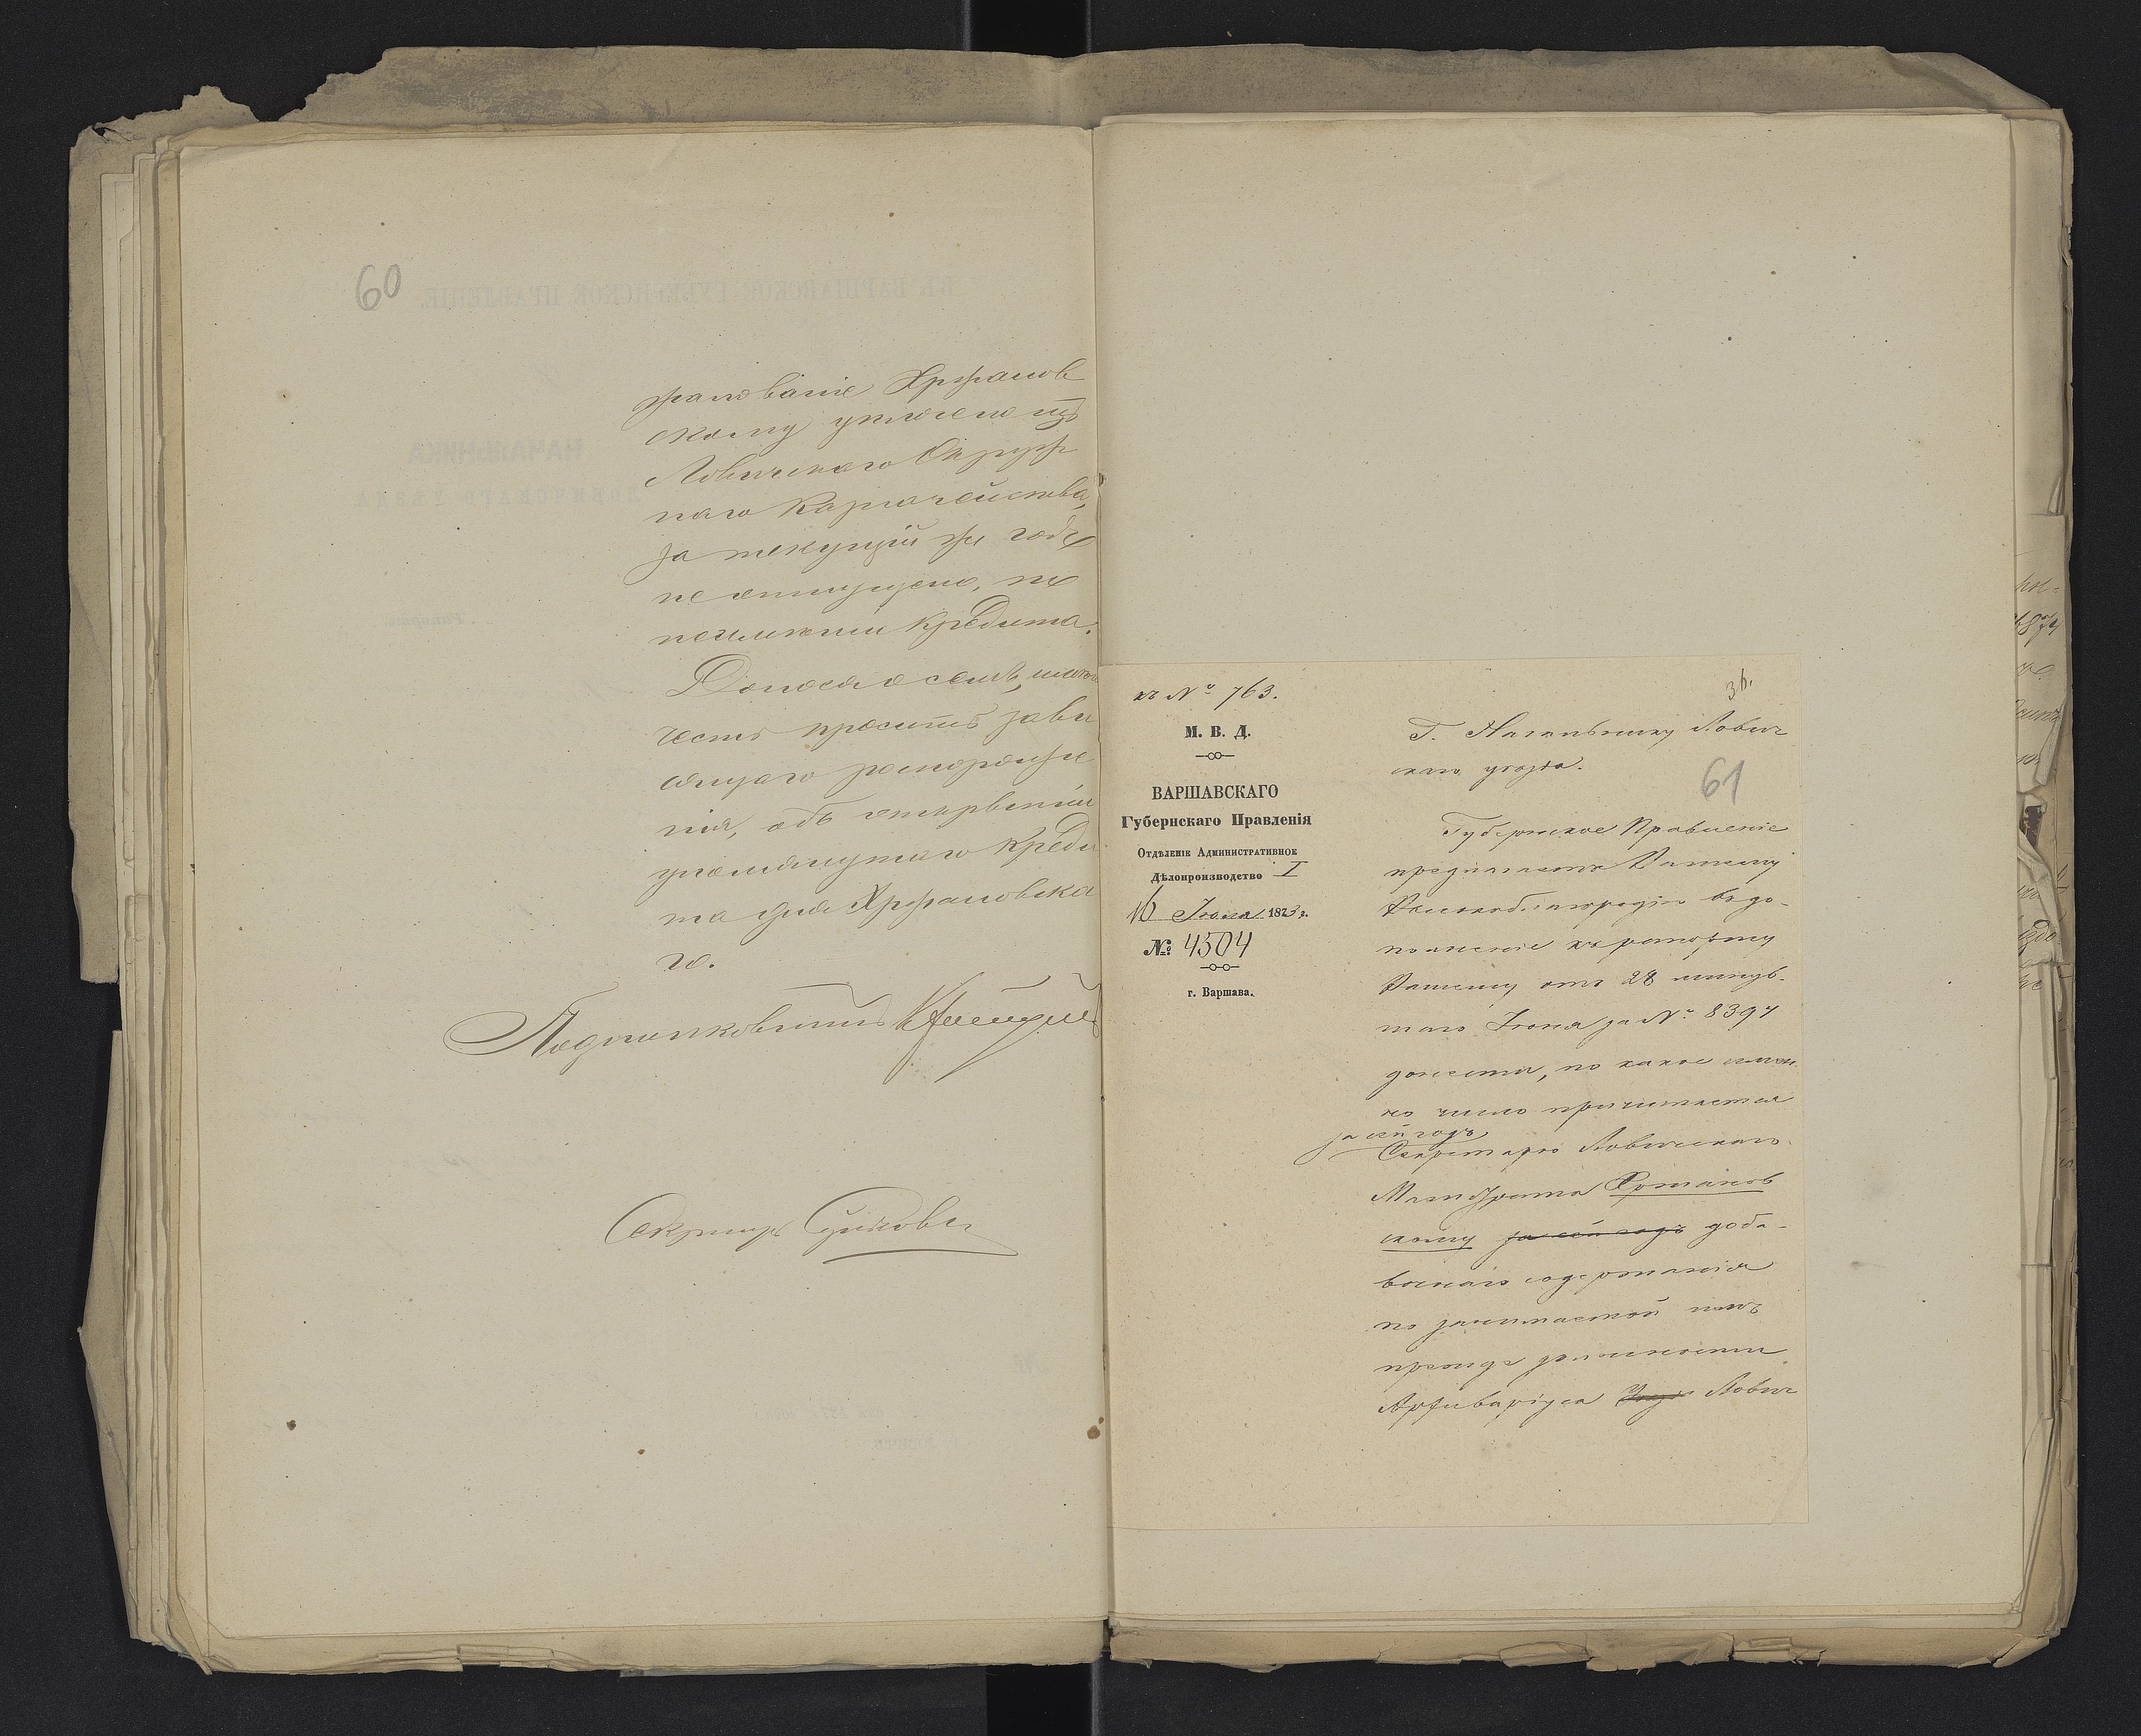 60
жалованіе Хржанов
скому уплочено изъ
Ловичскаго Окруж
наго Казначейства,
за текущій же годъ
не отпущено, по
неимѣнію кредита.
Донося о семъ, имѣю
честь просить зави
сящаго распоряже
нія, объ открытіи
упомянутаго креди
та для Хржановска
го.
Подполковникъ
Секретарь
къ № 763.
М. В. Д.
ВАРШАВСКАГО
Губернскаго Правленія
Отдѣленіе Административное
Дѣлопроизводство I
16 Іюля 1873 г.
№ 4504
г. Варшава.
61
Г. Начальнику Лович
скаго уѣзда.
Губернское Правленіе
предлагаетъ Вашему
Высокоблагородію въ до-
полненіе къ рапорту
Вашему отъ 28 минув-
шаго Іюня за № 8397
донести, по какое имен
но число причитается
за сей годъ
Секретарю Ловичскаго
Магистрата Хржанов
скому за сей годъ доба-
вочнаго содержанія
по занимаемой имъ
прежде должности
Архиваріуса Лович